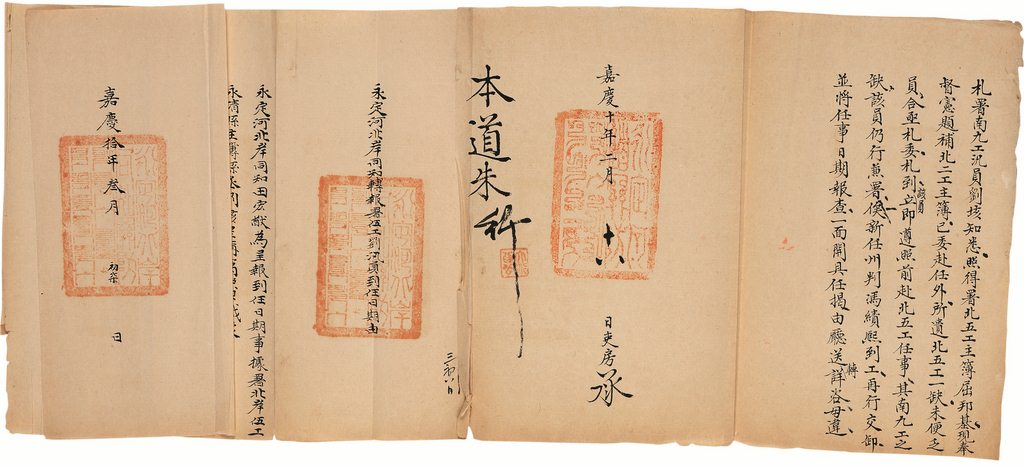 札署南九工汛員劉垓知悉照得署北五工主簿屈邦基現奉
督憲題補北二工主簿已委赴任外所遺北五工一缺未便乏
員合亟札委札到該員立即遵照前赴北五工任事其南九工之
缺該員仍行兼署俟新任州判馮績熙到工再行交卸
並將任事日期報查一面開具任揭由廳送轉詳咨毋違
嘉慶十年二月
十八
日吏房承
本道朱
永定河北岸同知轉報署伍工劉汛員到任日期由
三月初八日
永定河北岸同知田宏猷為呈報到任日期事據署北岸伍工
永清縣主簿
嘉慶拾年叁月
初柒
日